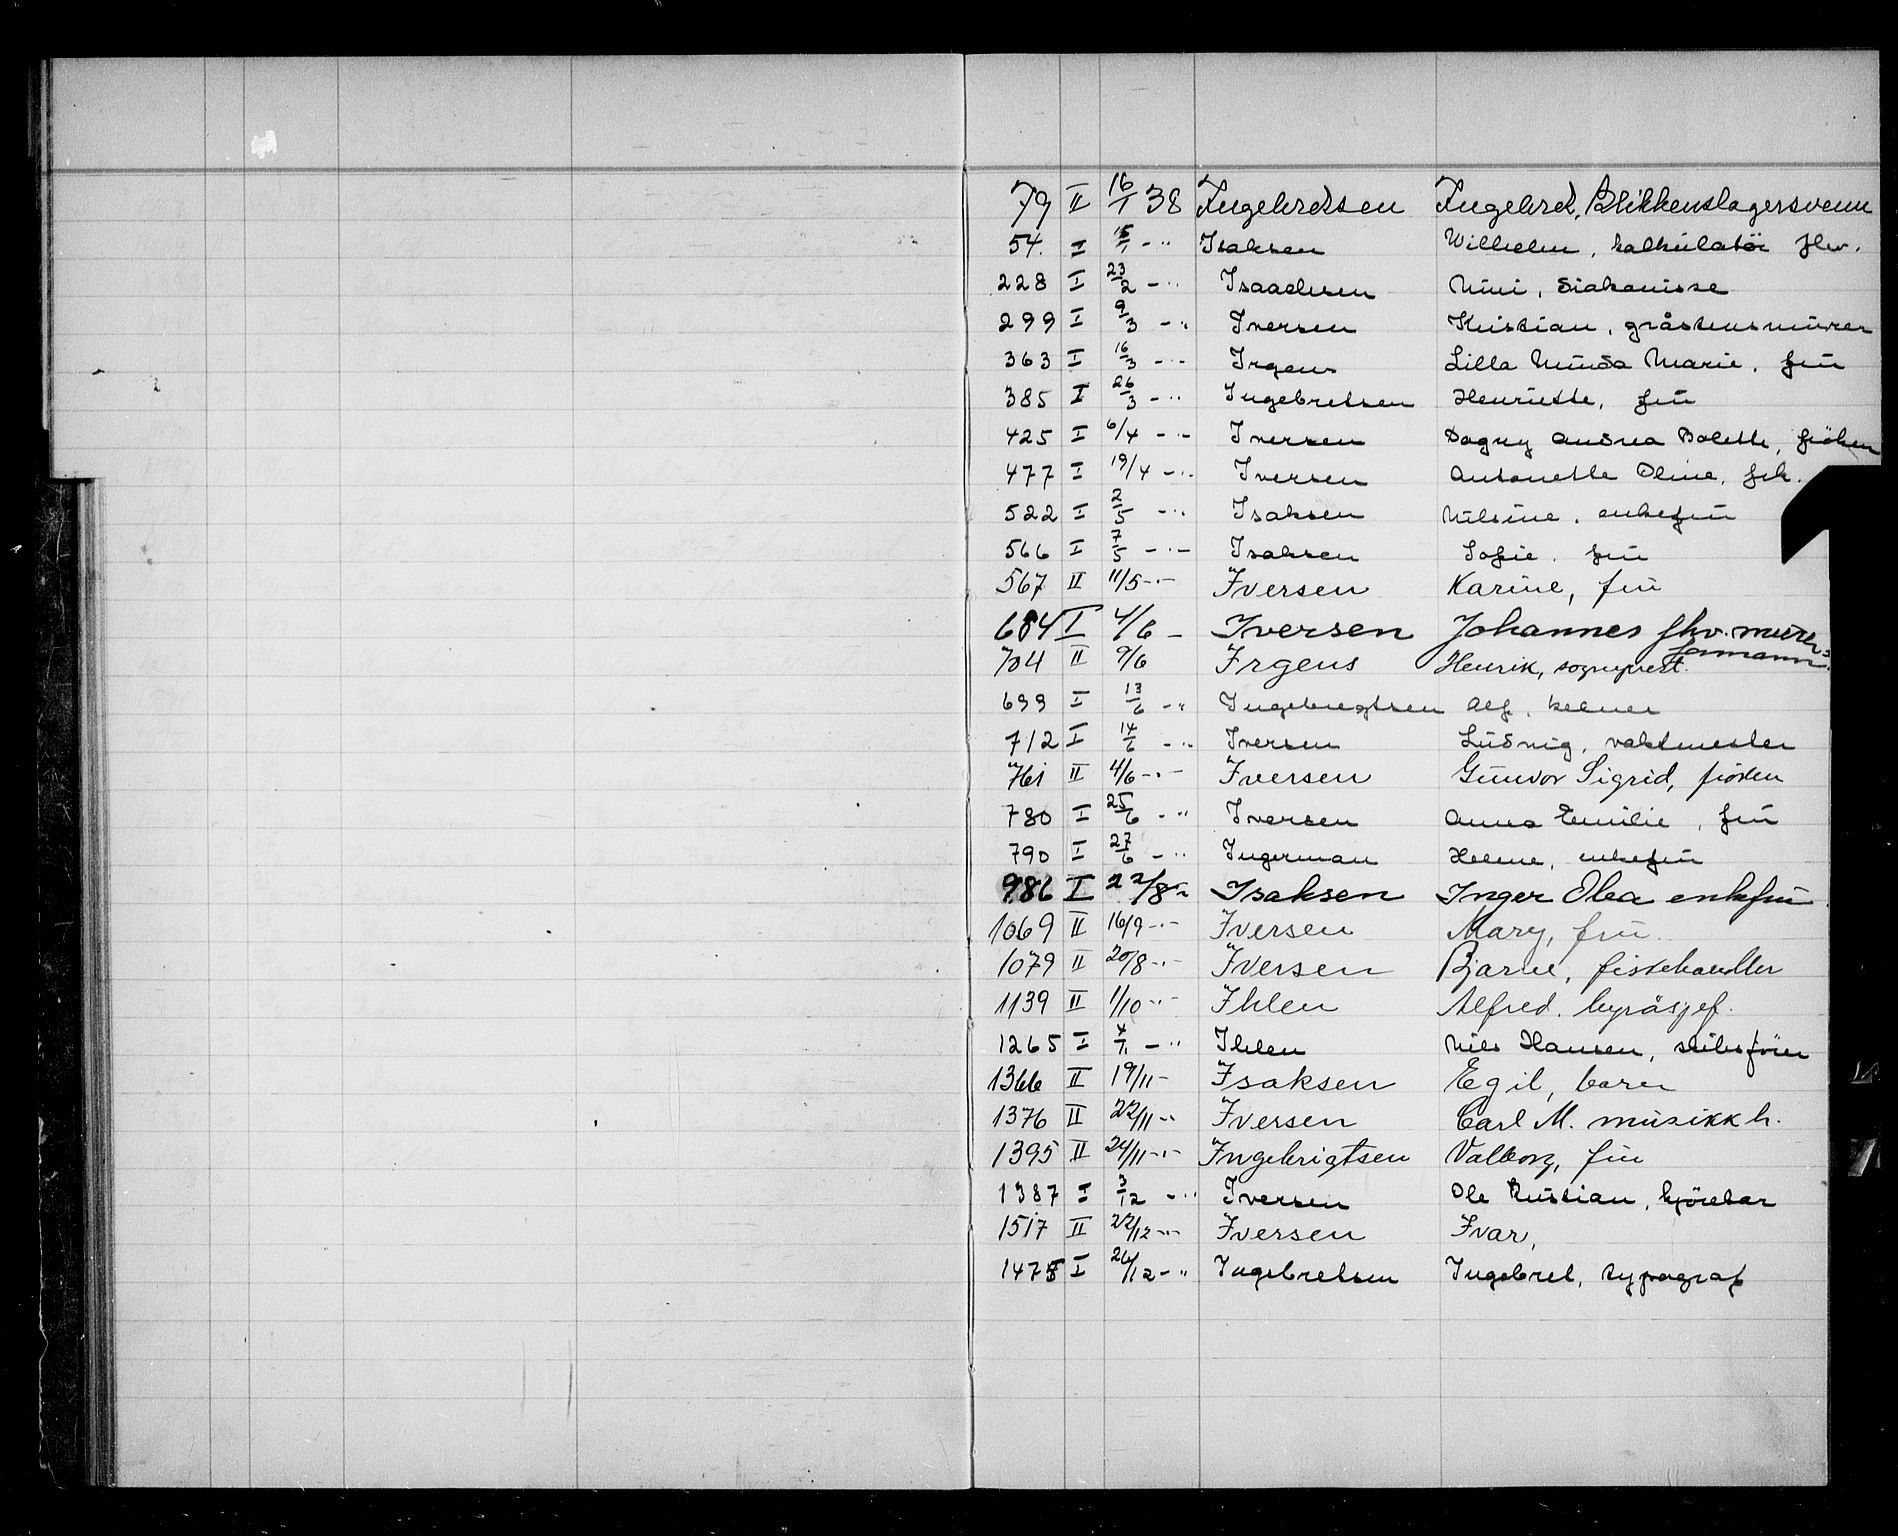 79 II 16/1 38 Ingebretsen Ingebret, Blikkenslagersvenn
54. I 15/1 - " Isaksen Wilhelm, kalkulatör fhv.
228 I 23/2 - " Isaachsen Nini, diakonisse
299 I 9/3 - " Iversen Kristian, gråstensmurer
363 I 16/3 - " Irgens Lilla Marie, fru
385 I 26/3 - " Ingebretsen Henriette, fru
425 I 6/4 - " - Iversen Dagny Andrea Bolette, fröken
477 I 19/4 - " Iversen Antonette Oline, frk.
522 I 2/5 - " Isaksen Nilsine, enkefru
566 I 7/5 - " - Isaksen Sofie, fru
567 II 11/5 - " - Iversen Karine, fru
684 I 4/6 - Iversen Johannes fhv. murer-
formann.
704 II 9/6 Irgens Henrik, sogneprest.
699 I 13/6 - " Ingebregtsen Alf, kelner
712 I 14/6 - " Iversen Ludvig, vaktmester
761 II 4/6 - " - Iversen Gunvor Sigrid, fröken
780 I 25/6 - " Iversen Anna Emilie, fru
790 I 27/6 - " Ingerman Helene, enkefru
986 I 22/8 - " Isaksen Inger Olea enkefru
1069 II 16/9 - " - Iversen Mary, fru
1079 II 20/8 - " - Iversen Bjarne, fiskehandler
1139 II 1/10 - " - Ihlen Alfred. byråsjef.
1265 I 4/11 - " Ihlen Nils Hansen, skibsförer
1366 II 19/11 - Isaksen Egil, barn
1376 II 22/11 - " Iversen Carl M. musikkh.
1395 II 24/11 - " - Ingebrigtsen Valborg, fru
1387 I 3/12 - " Iversen Ole Kristian, kjörekar
1517 II 22/12 - " - Iversen Ivar,
1475 I 26/12 - " Ingebretsen Ingebret, typograf